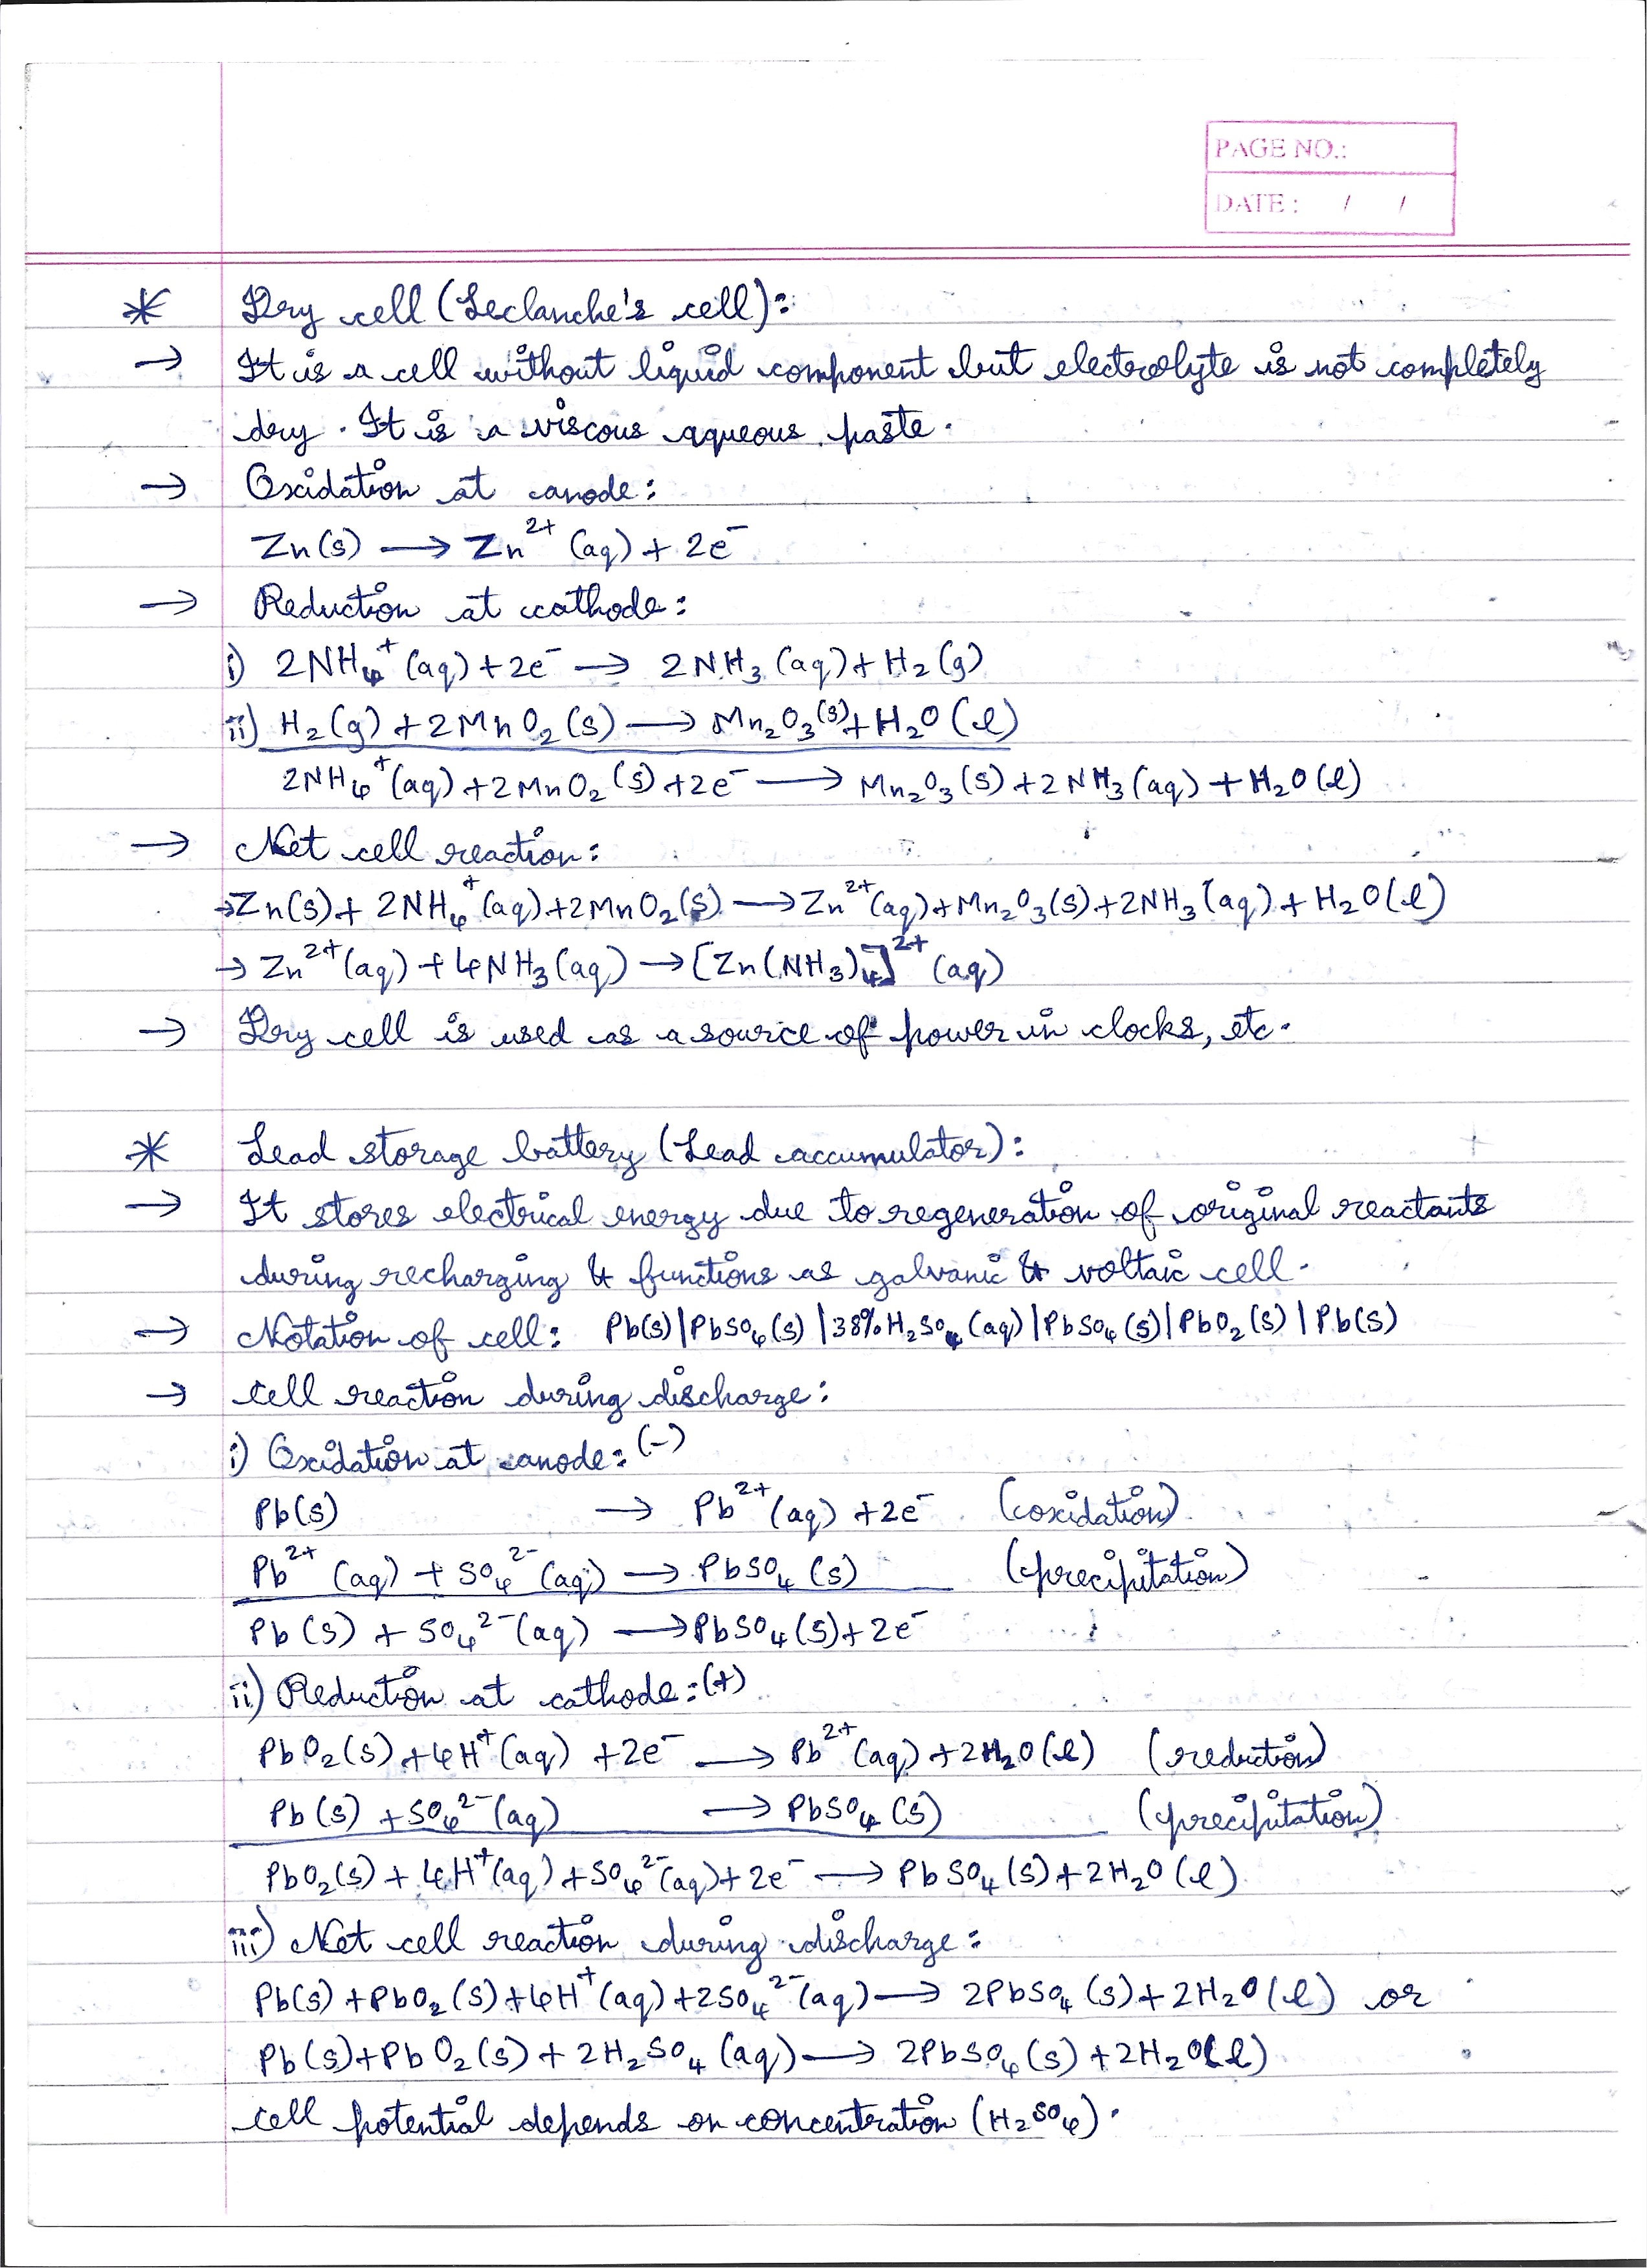 PAGE NO.:
DATE : / /
* Dry cell (Leclanche's cell):
→ It is a cell without liquid component but electrolyte is not completely
dry. It is a viscous aqueous paste.
→ Oxidation at anode:
Zn(s) ⟶ Zn²⁺ (aq) + 2e⁻
→ Reduction at cathode:
i) 2NH₄⁺ (aq) + 2e⁻ → 2NH₃ (aq) + H₂ (g)
ii) H₂(g) + 2MnO₂ (s) ⟶ Mn₂O₃ (s) + H₂O (l)
2NH₄⁺ (aq) + 2MnO₂ (s) + 2e⁻ ⟶ Mn₂O₃ (s) + 2NH₃ (aq) + H₂O (l)
→ Net cell reaction:
→ Zn(s) + 2NH₄⁺ (aq) + 2MnO₂(s) ⟶ Zn²⁺ (aq) + Mn₂O₃ (s) + 2NH₃ (aq) + H₂O (l)
→ Zn²⁺ (aq) + 4NH₃ (aq) → [Zn(NH₃)₄]²⁺ (aq)
→ Dry cell is used as a source of power in clocks, etc.
* Lead storage battery (Lead accumulator):
→ It stores electrical energy due to regeneration of original reactants
during recharging & functions as galvanic & voltaic cell.
→ Notation of cell: Pb(s)|PbSO₄(s)|38% H₂SO₄ (aq)|PbSO₄ (s)|PbO₂ (s)|Pb(s)
→ cell reaction during discharge:
i) Oxidation at anode: (-)
Pb(s) → Pb²⁺ (aq) + 2e⁻ (oxidation)
Pb²⁺ (aq) + SO₄²⁻ (aq) → PbSO₄ (s) (precipitation)
Pb (s) + SO₄²⁻ (aq) ⟶ PbSO₄ (s) + 2e⁻
ii) Reduction at cathode: (+)
PbO₂(s) + 4H⁺ (aq) + 2e⁻ ⟶ Pb²⁺ (aq) + 2H₂O (l) (reduction)
Pb (s) + SO₄²⁻ (aq) ⟶ PbSO₄ (s) (precipitation)
PbO₂(s) + 4H⁺(aq) + SO₄²⁻ (aq) + 2e⁻ ⟶ PbSO₄ (s) + 2H₂O (l)
iii) Net cell reaction during discharge:
Pb(s) + PbO₂ (s) + 4H⁺ (aq) + 2SO₄²⁻ (aq) ⟶ 2PbSO₄ (s) + 2H₂O (l) or
Pb(s) + PbO₂(s) + 2H₂SO₄ (aq) ⟶ 2PbSO₄ (s) + 2H₂O(l)
cell potential depends on concentration (H₂SO₄).